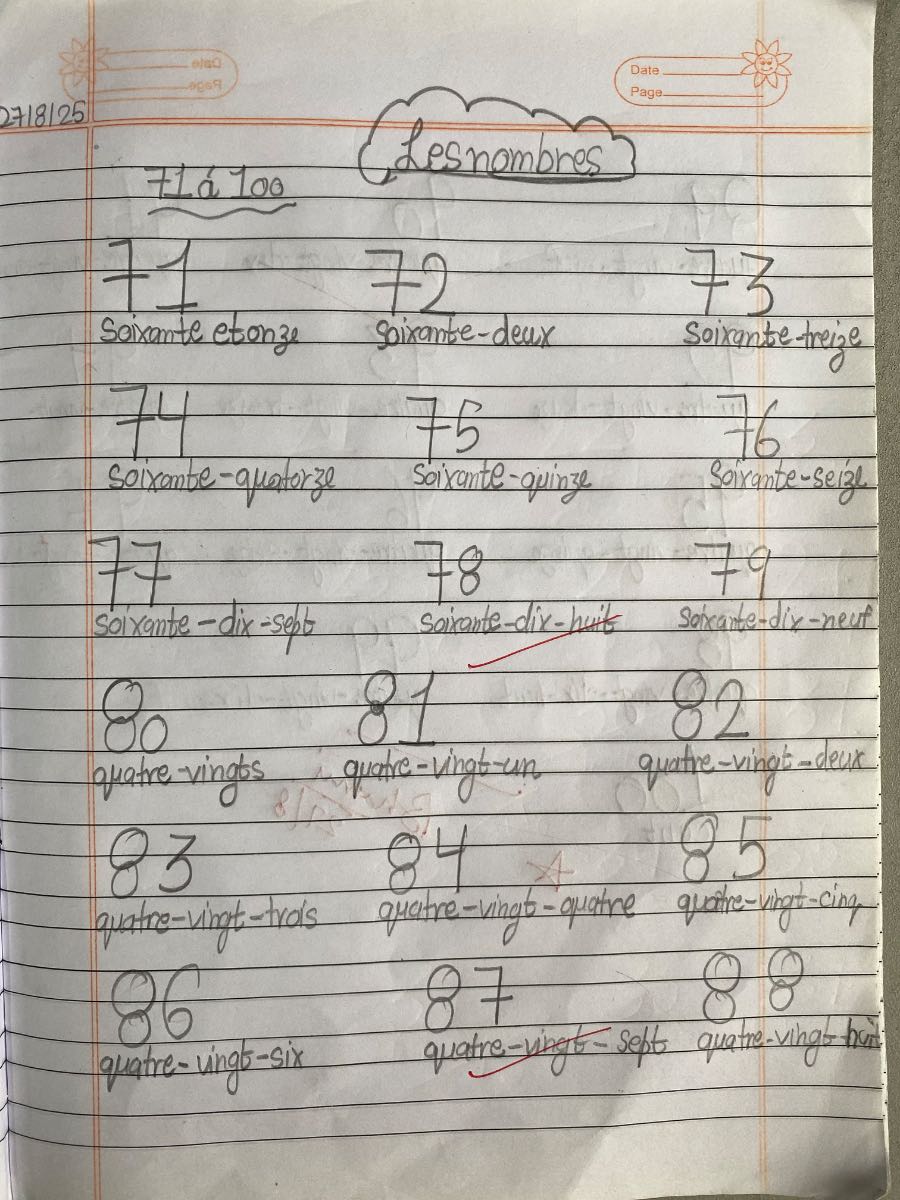 Date
Page
27/8/25
Les nombres
71 á 100
71 72 73
Soixante et onze soixante-deux soixante-treize
74 75 76
soixante-quatorze soixante-quinze soixante-seize
77 78 79
soixante-dix-sept soixante-dix-huit soixante-dix-neuf
80 81 82
quatre-vingts quatre-vingt-un quatre-vingt-deux
83 84 85
quatre-vingt-trois quatre-vingt-quatre quatre-vingt-cinq
86 87 88
quatre-vingt-six quatre-vingt-sept quatre-vingt-huit